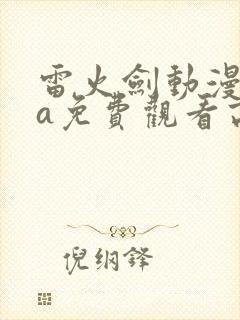 雷火劍動漫
a免費觀看
倪纲鋒